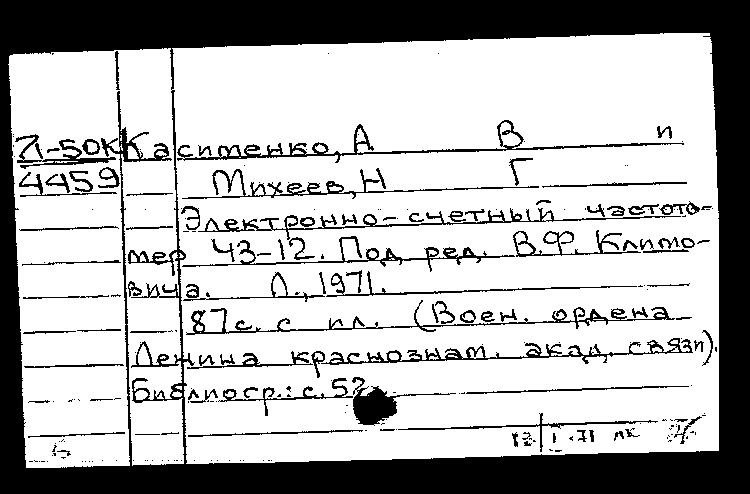 71-50К Касименко, А В и
4459 Михеев, Н Г
Электронно-счетный частото-
мер Ч3-12. Под ред. В.Ф. Климо-
вича. Л., 1971.
87с. с ил. (Воен. ордена
Ленина краснознам. акад. связи).
Библиогр.: с. 52
12 I-71